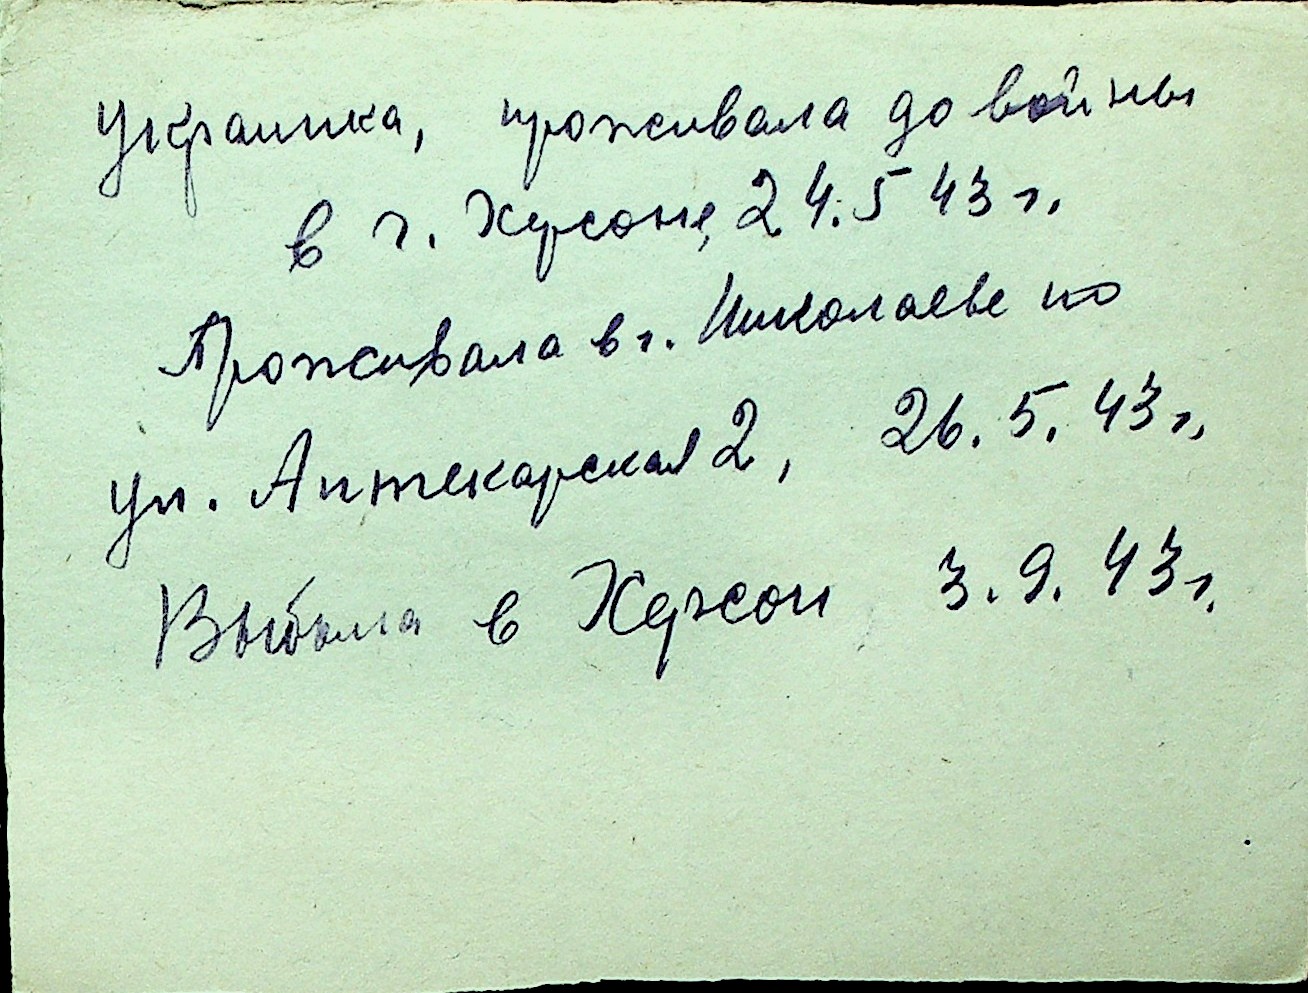 украинка, проживала до войны
в г. Херсоне, 24.5 43 г.
Проживала в г. Николаеве по
ул. Аптекарская 2, 26.5.43 г,
Выбыла в Херсон 3.9.43 г.